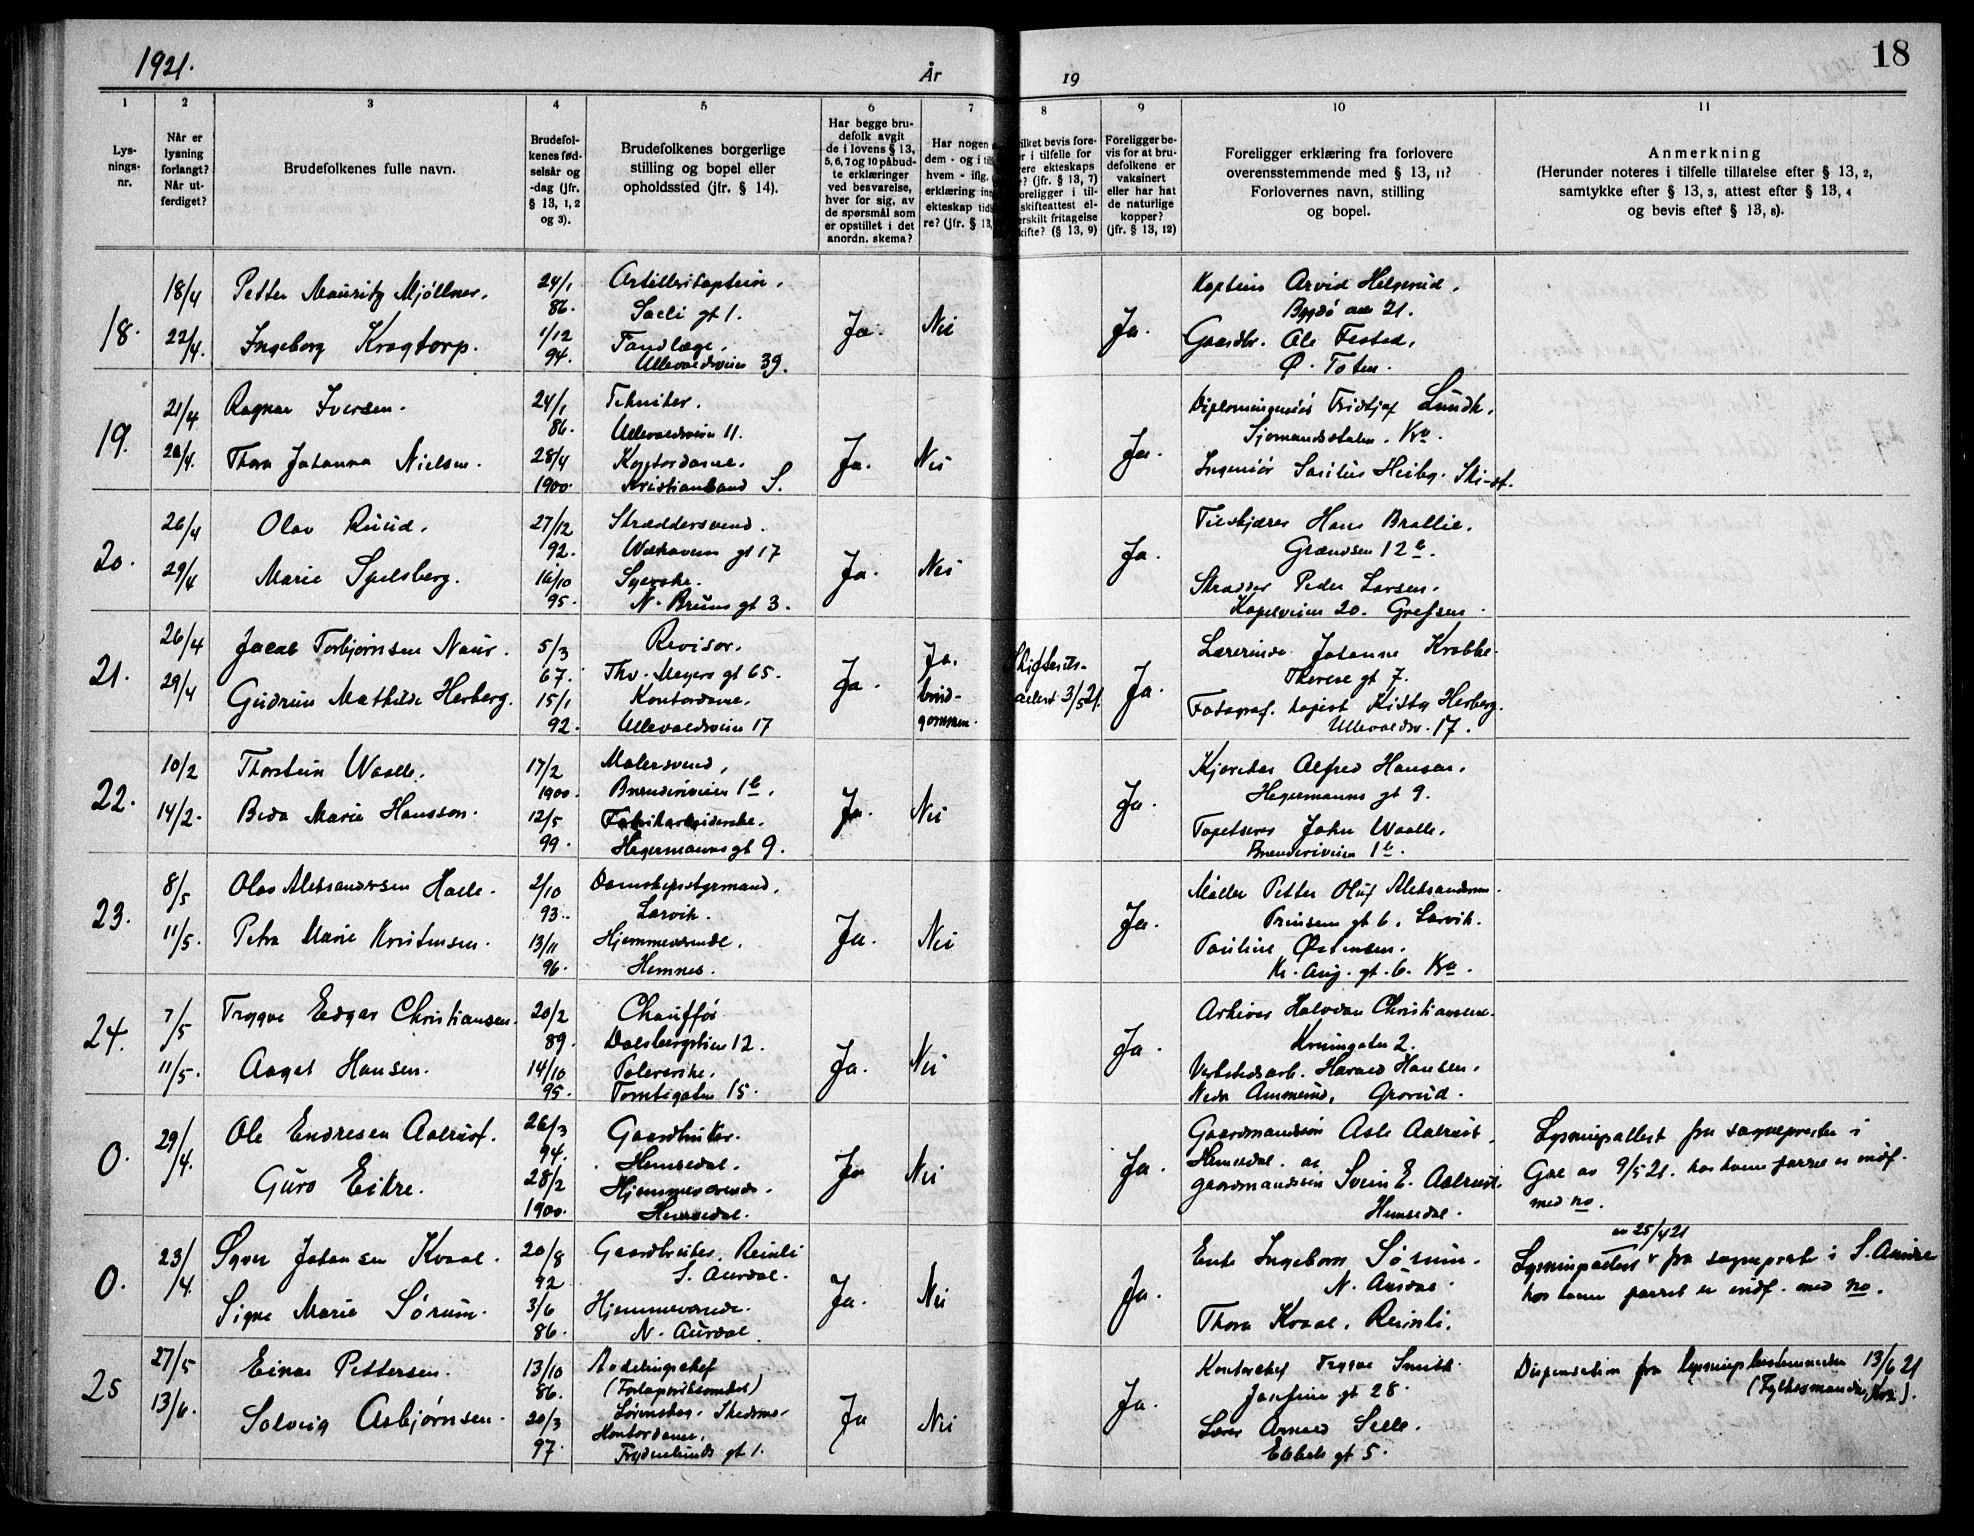 1921.
År
19
18
1
2
3
4
5
6
7
8
9
10
11
Lys-
nings-
nr.
Når er
lysning
forlangt?
Når ut-
ferdiget?
Brudefolkenes fulle navn.
Brudefol-
kenes fød-
selsår og
-dag (jfr.
§ 13, 1, 2
og 3).
Brudefolkenes borgerlige
stilling og bopel eller
opholdssted (jfr. § 14).
Har begge bru-
defolk avgit
de i lovens § 13,
5, 6, 7 og 10 påbud-
te erklæringer
ved besvarelse,
hver for sig, av
de spørsmål som
er opstillet i det
anordn. skema?
Har nogen
dem - og i
hvem - iflg.
erklæring
ekteskap
re? (jfr. § 13,
ilket bevis fore-
r i tilfelle for
ere ekteskaps
? (jfr. § 13, 7)
oreligger i til-
skifteattest el-
erskilt fritagelse
kifte? (§ 13, 9)
Foreligger be-
vis for at bru-
defolkene er
vaksinert
eller har hat
de naturlige
kopper?
(jfr. § 13, 12)
Foreligger erklæring fra forlovere
overensstemmende med § 13, 11?
Forlovernes navn, stilling
og bopel.
Anmerkning
(Herunder noteres i tilfelle tillatelse efter § 13, 2,
samtykke efter § 13, 3, attest efter § 13, 4
og bevis efter § 13, 8).
18.
18/4
22/4.
Petter Mauritz Mjöllner.
Ingeborg Kragtorp.
24/1
86.
1/12
94.
Artillerikaptein.
gt 1.
Tandlæge.
Ullevoldsveien 39.
Ja.
Nei
Ja.
Kaptein Arvid Helgerud.
Bygdö alle 21.
Gaardbr. Ole Festad,
Ø. Toten.
19.
21/4
Ragnar Iversen.
Thora Johanna Nielsen.
24/1
86.
28/4
1900.
Tekniker.
Ullevoldsveien 11.
Kontordame.
Kristiansand S.
Ja.
Nei
Ja.
Diplomingeniör Fridtjof Lundh.
Sjomandsskolen. Kra.
Ingeniör Heiby.
20.
26/4
29/4
Olav Ruud.
Marie Spelsberg.
27/12
92.
16/10
95.
Skræddersvend.
Welhavens gt 17
Syerske.
N. Bruns gt 3.
Ja.
Nei
Ja.
Hans
Grændsen 12 b.
Skrædder Peder Larsen.
Kapelveien 20. Grefsen.
21.
26/4
29/4
Jacob Torbjørnsen Naur.
Gudrun Mathilde Herberg.
5/3
67.
15/1
92.
Revisor.
Thv. Meyers gt 65.
Kontordame.
Ullevoldsveien 17
Ja.
Ja.
brud-
gommen.
3/5 21.
Ja.
Lærerinde Johanne Krabbe.
Therese gt 7.
Fotograf. Kitty Herberg.
Ullevoldsv. 17.
22.
10/2
14/2.
Thorstein Waale.
Beda Marie Hansson.
17/2
1900.
12/5
99.
Malersvend,
Brenneriveien 1 b.
Fabrikarbeiderske.
Hegermanns gt 9.
Ja.
Nei
Ja.
Alfred Hansen.
Hegermanns gt 9.
Tapetserer John Waale.
Brenneriveien 1 b.
23.
8/5
11/5.
Olav Aleksandersen Halle.
Petra Marie Kristensen.
2/10
93.
13/11
96.
Damskipsstyrmand.
Larvik.
Hjemmeværende.
Hemnes.
Ja.
Nei
Ja.
Møller Petter Oluf Aleksandersen.
Prinsens gt 6. Larvik.
Pauline Østensen.
Kr. Aug. gt. 6. Kra.
24.
7/5
11/5.
Trygve Edgar Christiansen.
Aagot Hansen.
20/2
89.
14/10
95.
Chaufför
Dalsbergstien 12.
Polererske.
Tomtegaten 15.
Ja.
Nei
Ja.
Arkivar Halvdan Christiansen.
2.
Verkstedsarb. Harald Hansen.
Nedr Ammerud, Grorud.
0.
29/4.
Ole Endresen Aalrust.
Guro Eikre.
26/3
94.
28/2
1900.
Gaardbruker.
Hemsedal.
Hjemmeværende.
Hemsedal.
Ja
Nei
Ja.
Gaardmandssön Asle Aalrust,
Hemsedal. og
gaardmandssön Svein E. Aalrust.
Hemsedal.
Lysningsattest fra sogneprester i
Gol av 9/5 21. hos hvem parret er indf.
med no.
0.
23/4.
Syver Johansen Kvaal.
Signe Marie Sørum.
20/8
92
3/6
86.
Gaardbruker. Reinli
S. Aurdal.
Hjemmeværende.
N. Aurdal.
Ja.
Nei
Ja.
Enke Ingeborg Sørum.
N. Aurdal.
Thora Kvaal. Reinli.
av 25/4 21
Lysningsattest fra sogneprest i S. Aurdal
hos hvem parret er indf. med no.
25
27/5
13/6.
Einar Pettersen.
Solveig Asbjørnsen.
13/10
86.
20/3
97.
Avdelingschef
Kontordame.
Frydenlunds gt 1.
Ja
Nei
Ja.
Kontorchef Trygve Smith.
Josefine gt 28.
Lærer Arnold Selle.
gt 5.
Dispensation fra lysningsbestemmelsen 13/6 21
(Fylkesmanden, Kra.).